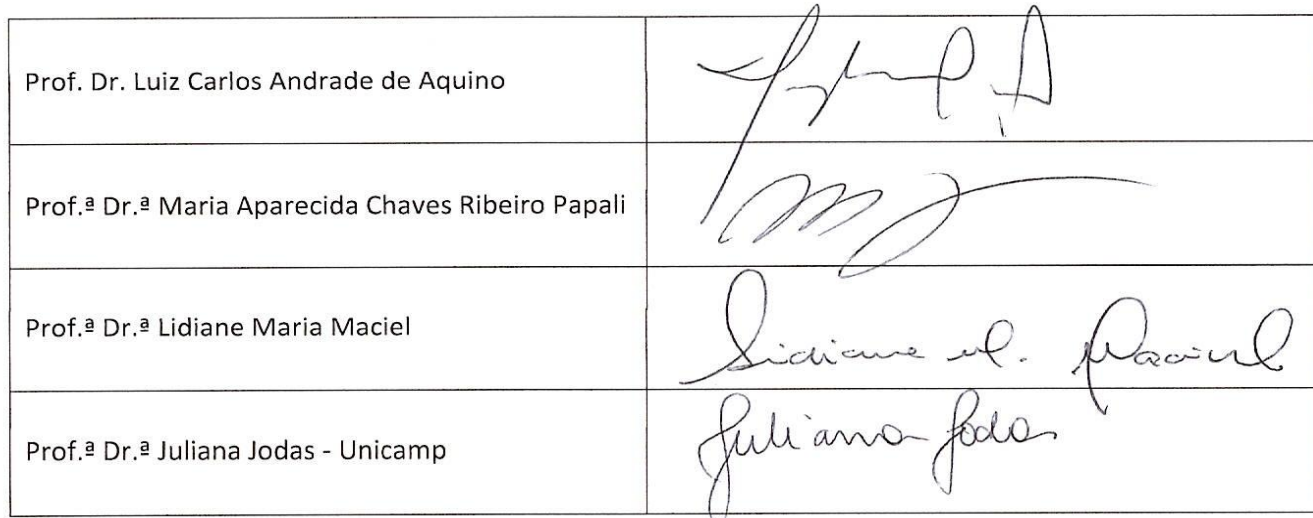 Prof. Dr. Luiz Carlos Andrade de Aquino
Prof.ª Dr.ª Maria Aparecida Chaves Ribeiro Papali
Prof.ª Dr.ª Lidiane Maria Maciel
Lidiane M. Maciel
Prof.ª Dr.ª Juliana Jodas - Unicamp
Juliana Jodas